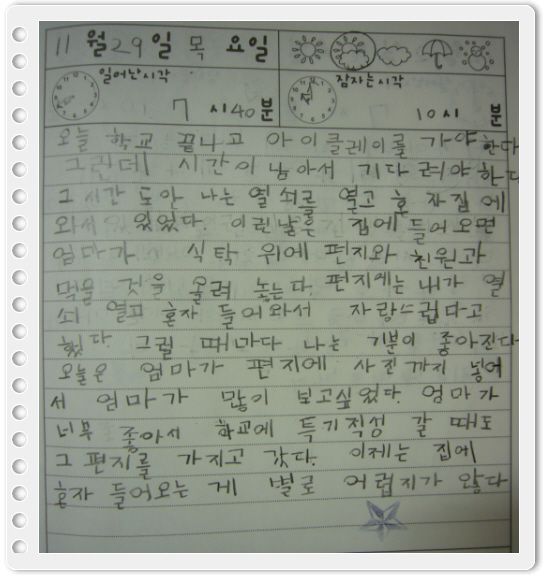 11 월 29 일 목 요일
일어난시각
잠자는시각
7 시 40 분
10 시 분
오늘 학교 끝나고 아이클레이를 가야한다
그런데 시간이 남아서 기다려야 한다
그 시간 도안 나는 열쇠를 열고 혼자 집에
와서 있었다. 이런날은 집에 들어오면
엄마가 식탁 위에 편지와 천원과
먹을 것을 올려 놓는다. 편지에는 내가 열
쇠 열고 혼자 들어와서 자랑스럽다고
했다. 그럴 때마다 나는 기분이 좋아진다
오늘은 엄마가 편지에 사진까지 넣어
서 엄마가 많이 보고싶었다. 엄마가
너무 좋아서 학교에 특기적성 갈 때도
그 편지를 가지고 갔다. 이제는 집에
혼자 들어오는 게 별로 어렵지가 않다